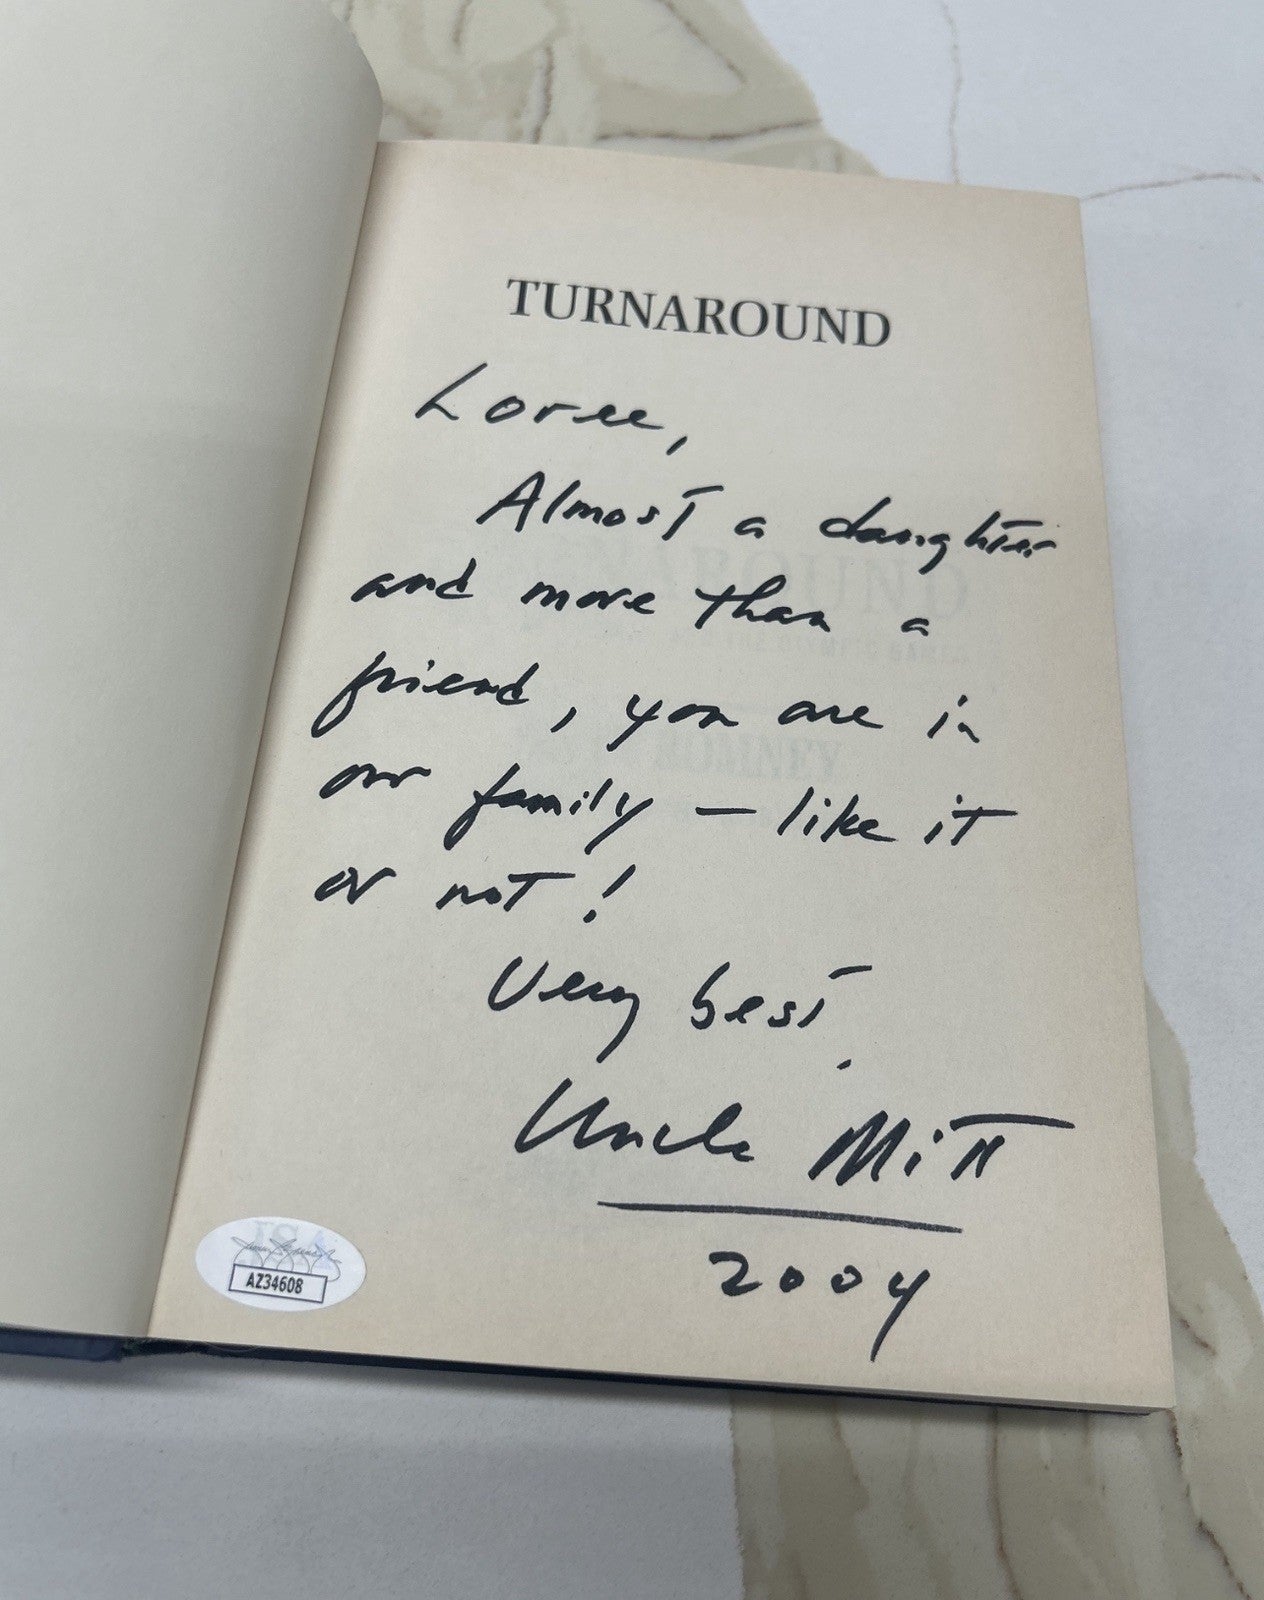 TURNAROUND
Loree,
Almost a daughter
and more than a
friend, you are in
our family – like it
or not!
Very best,
Uncle Mitt
2004
JSA
AZ34608
ROMNEY